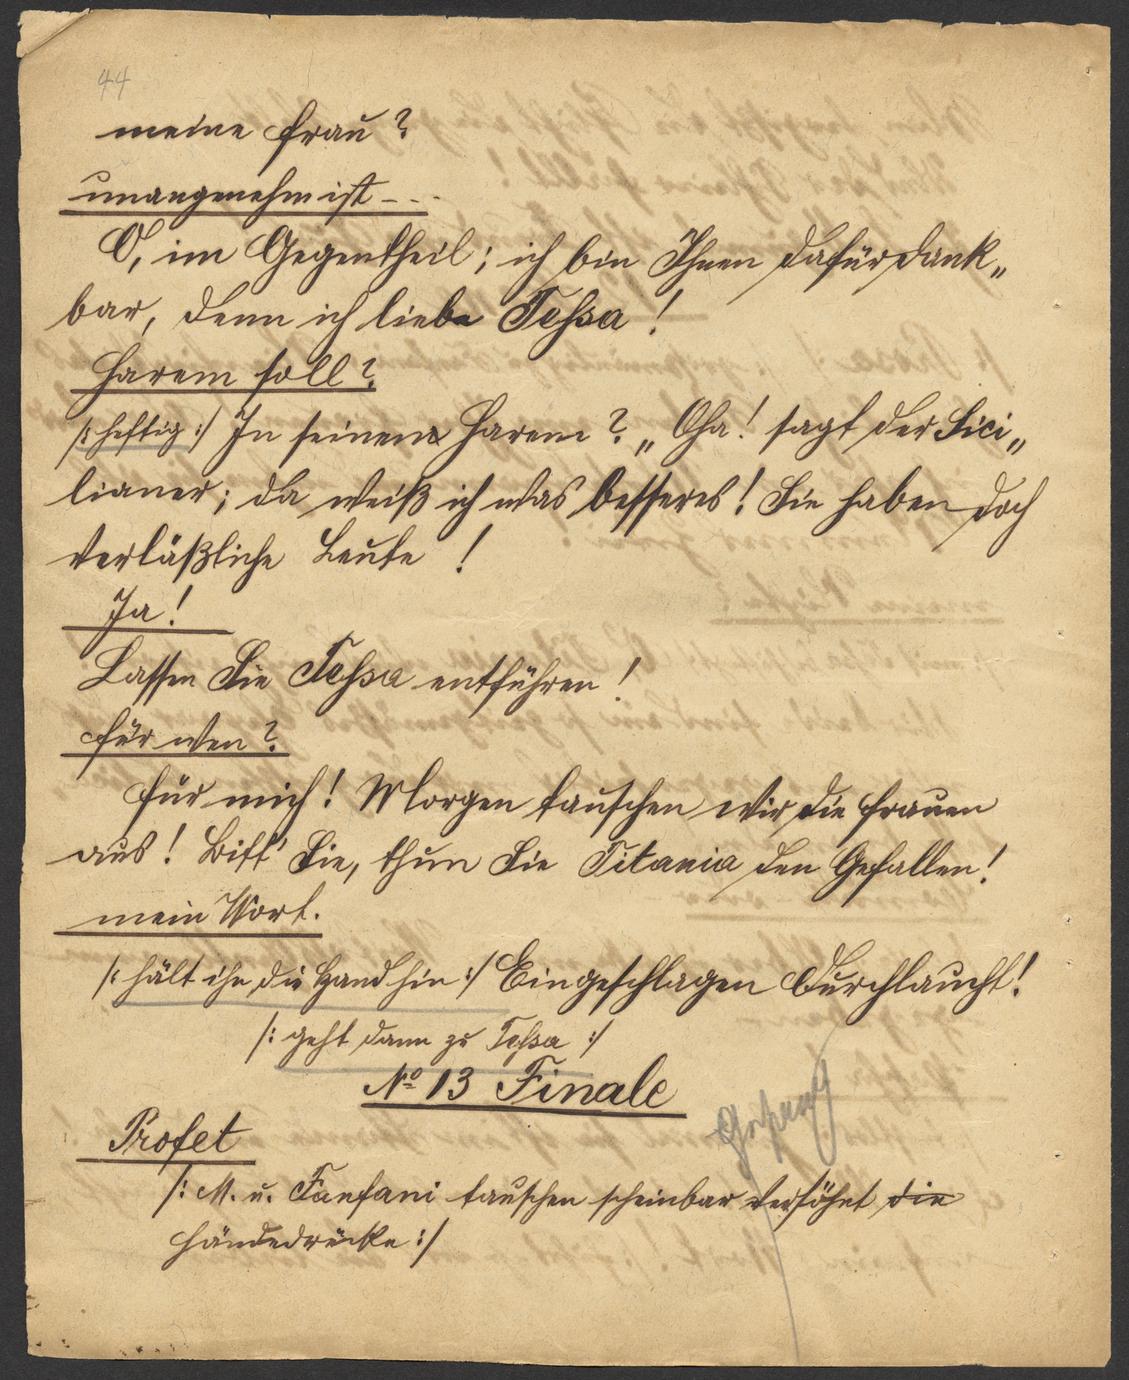 44
meine Frau?
unangenehm ist - - -
O, im Gegentheil; ich bin Ihnen dafür dank„
bar, denn ich liebe Teßsa!
Harem soll?
/: heftig :/ In seinen Harem? „Oha! sagt der Sici„
lianer; da weiß ich was besseres! Sie haben doch
verläßliche Leute!
Ja!
Lassen Sie Teßsa entführen!
Für wen?
Für mich! Morgen tauschen wir die Frauen
aus! Bitt' Sie, thun Sie Titania den Gefallen!
mein Wort.
/: hält ihn die Hand hin :/ Eingeschlagen Durchlaucht!
/: geht dann zu Teßsa :/
No 13 Finale
Profet
/: M. u. Fanfani tauschen scheinbar versöhnt die
Händedrücke :/